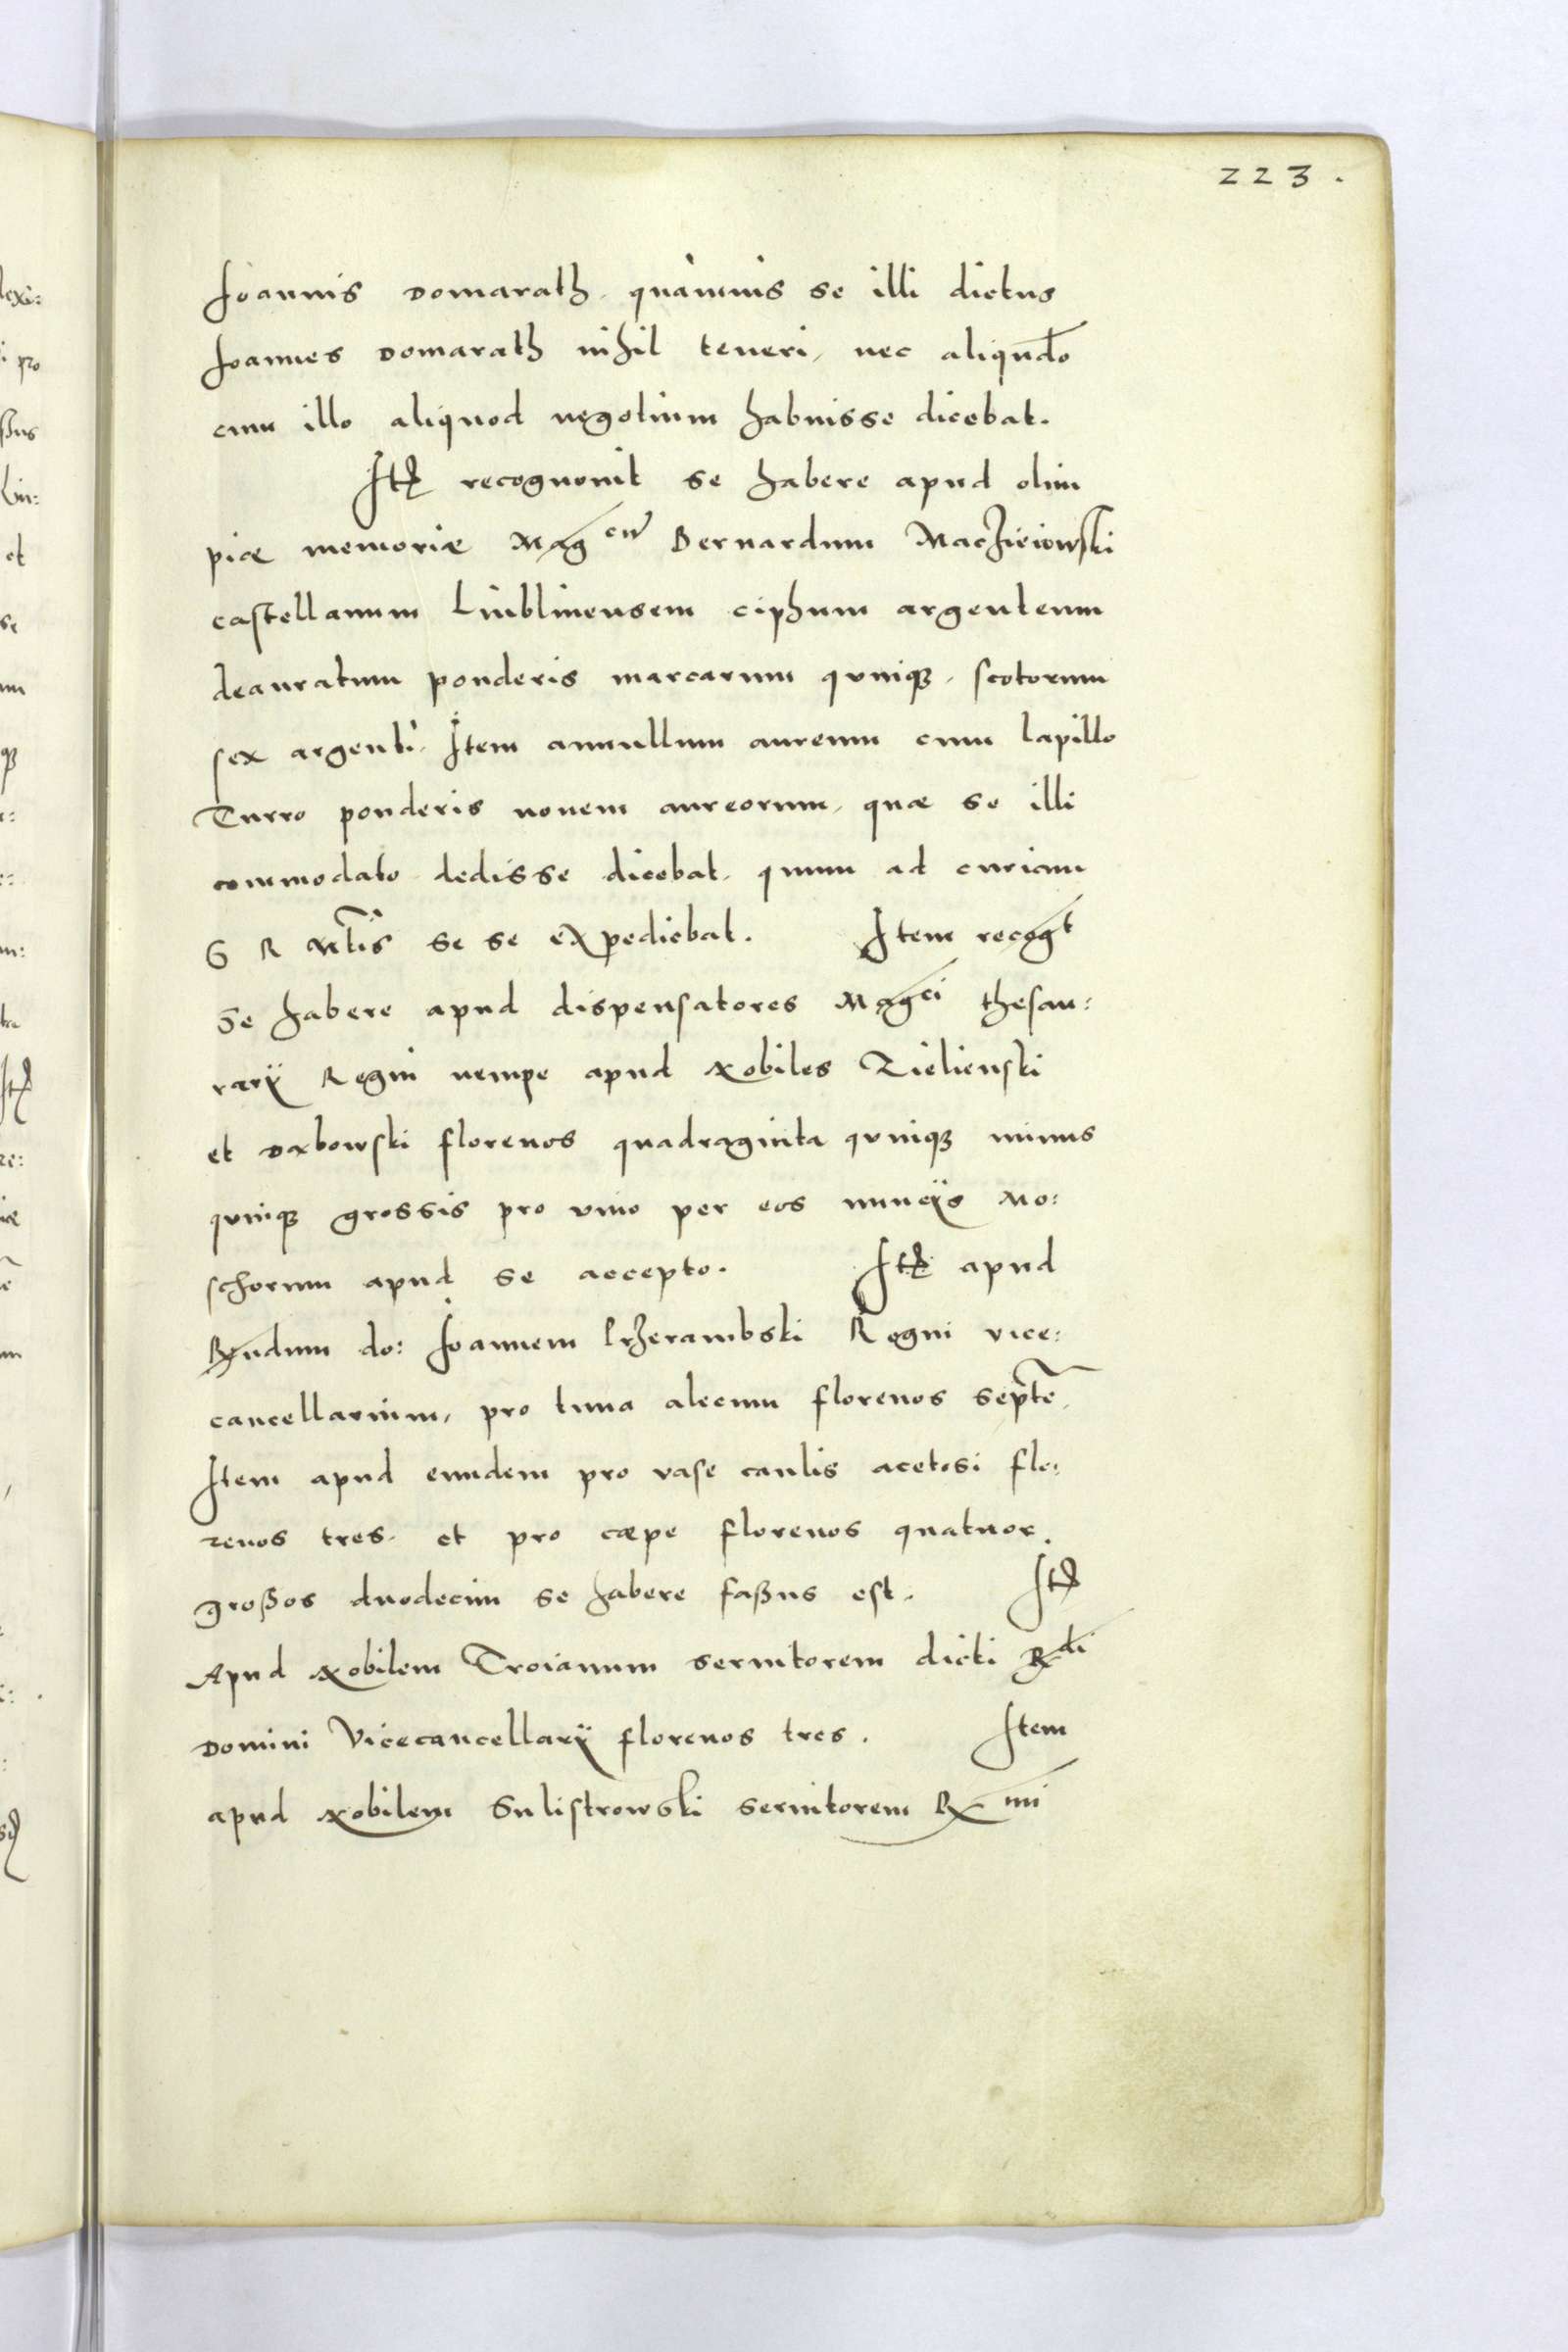 223.
Ioannis Domarath. quamuis se illi dictus
Ioannes Domarath nihil teneri, nec aliqudo
cum illo aliquod negotium habuisse dicebat.
Itē recognouit se habere apud olim
piæ memoriæ Mag cū Bernardum Maczieiowski
castellanum Lublinensem ciphum argenteum
deauratum ponderis marcarum quinqȝ, scotorum
sex argenti. Item annullum aureum cum lapillo
Turro ponderis nouem aureorum, quæ se illi
commodato dedisse dicebat, quum ad curiam
S R Mtis se se expediebat. Item recogt
se habere apud dispensatores Magci thesau:
rarÿ Regni nempe apud Nobiles Zielienski
et Dąbowski florenos quadraginta quinqȝ minus
quinqȝ grossis pro vino per eos nuncÿs Mo:
schorum apud se accepto. Itē apud
Rndum do: Ioannem Przerambski Regni vice:
cancellarium, pro tuna alecum florenos septē,
Item apud eundem pro vase caulis acetosi flo:
renos tres. et pro cæpe florenos quatuor.
großos duodecim se habere faßus est. Itē
Apud Nobilem Troianum seruitorem dicti Rdi
Domini Vicecancellarÿ florenos tres. Item
apud Nobilem Sulistrowski seruitorem R mi